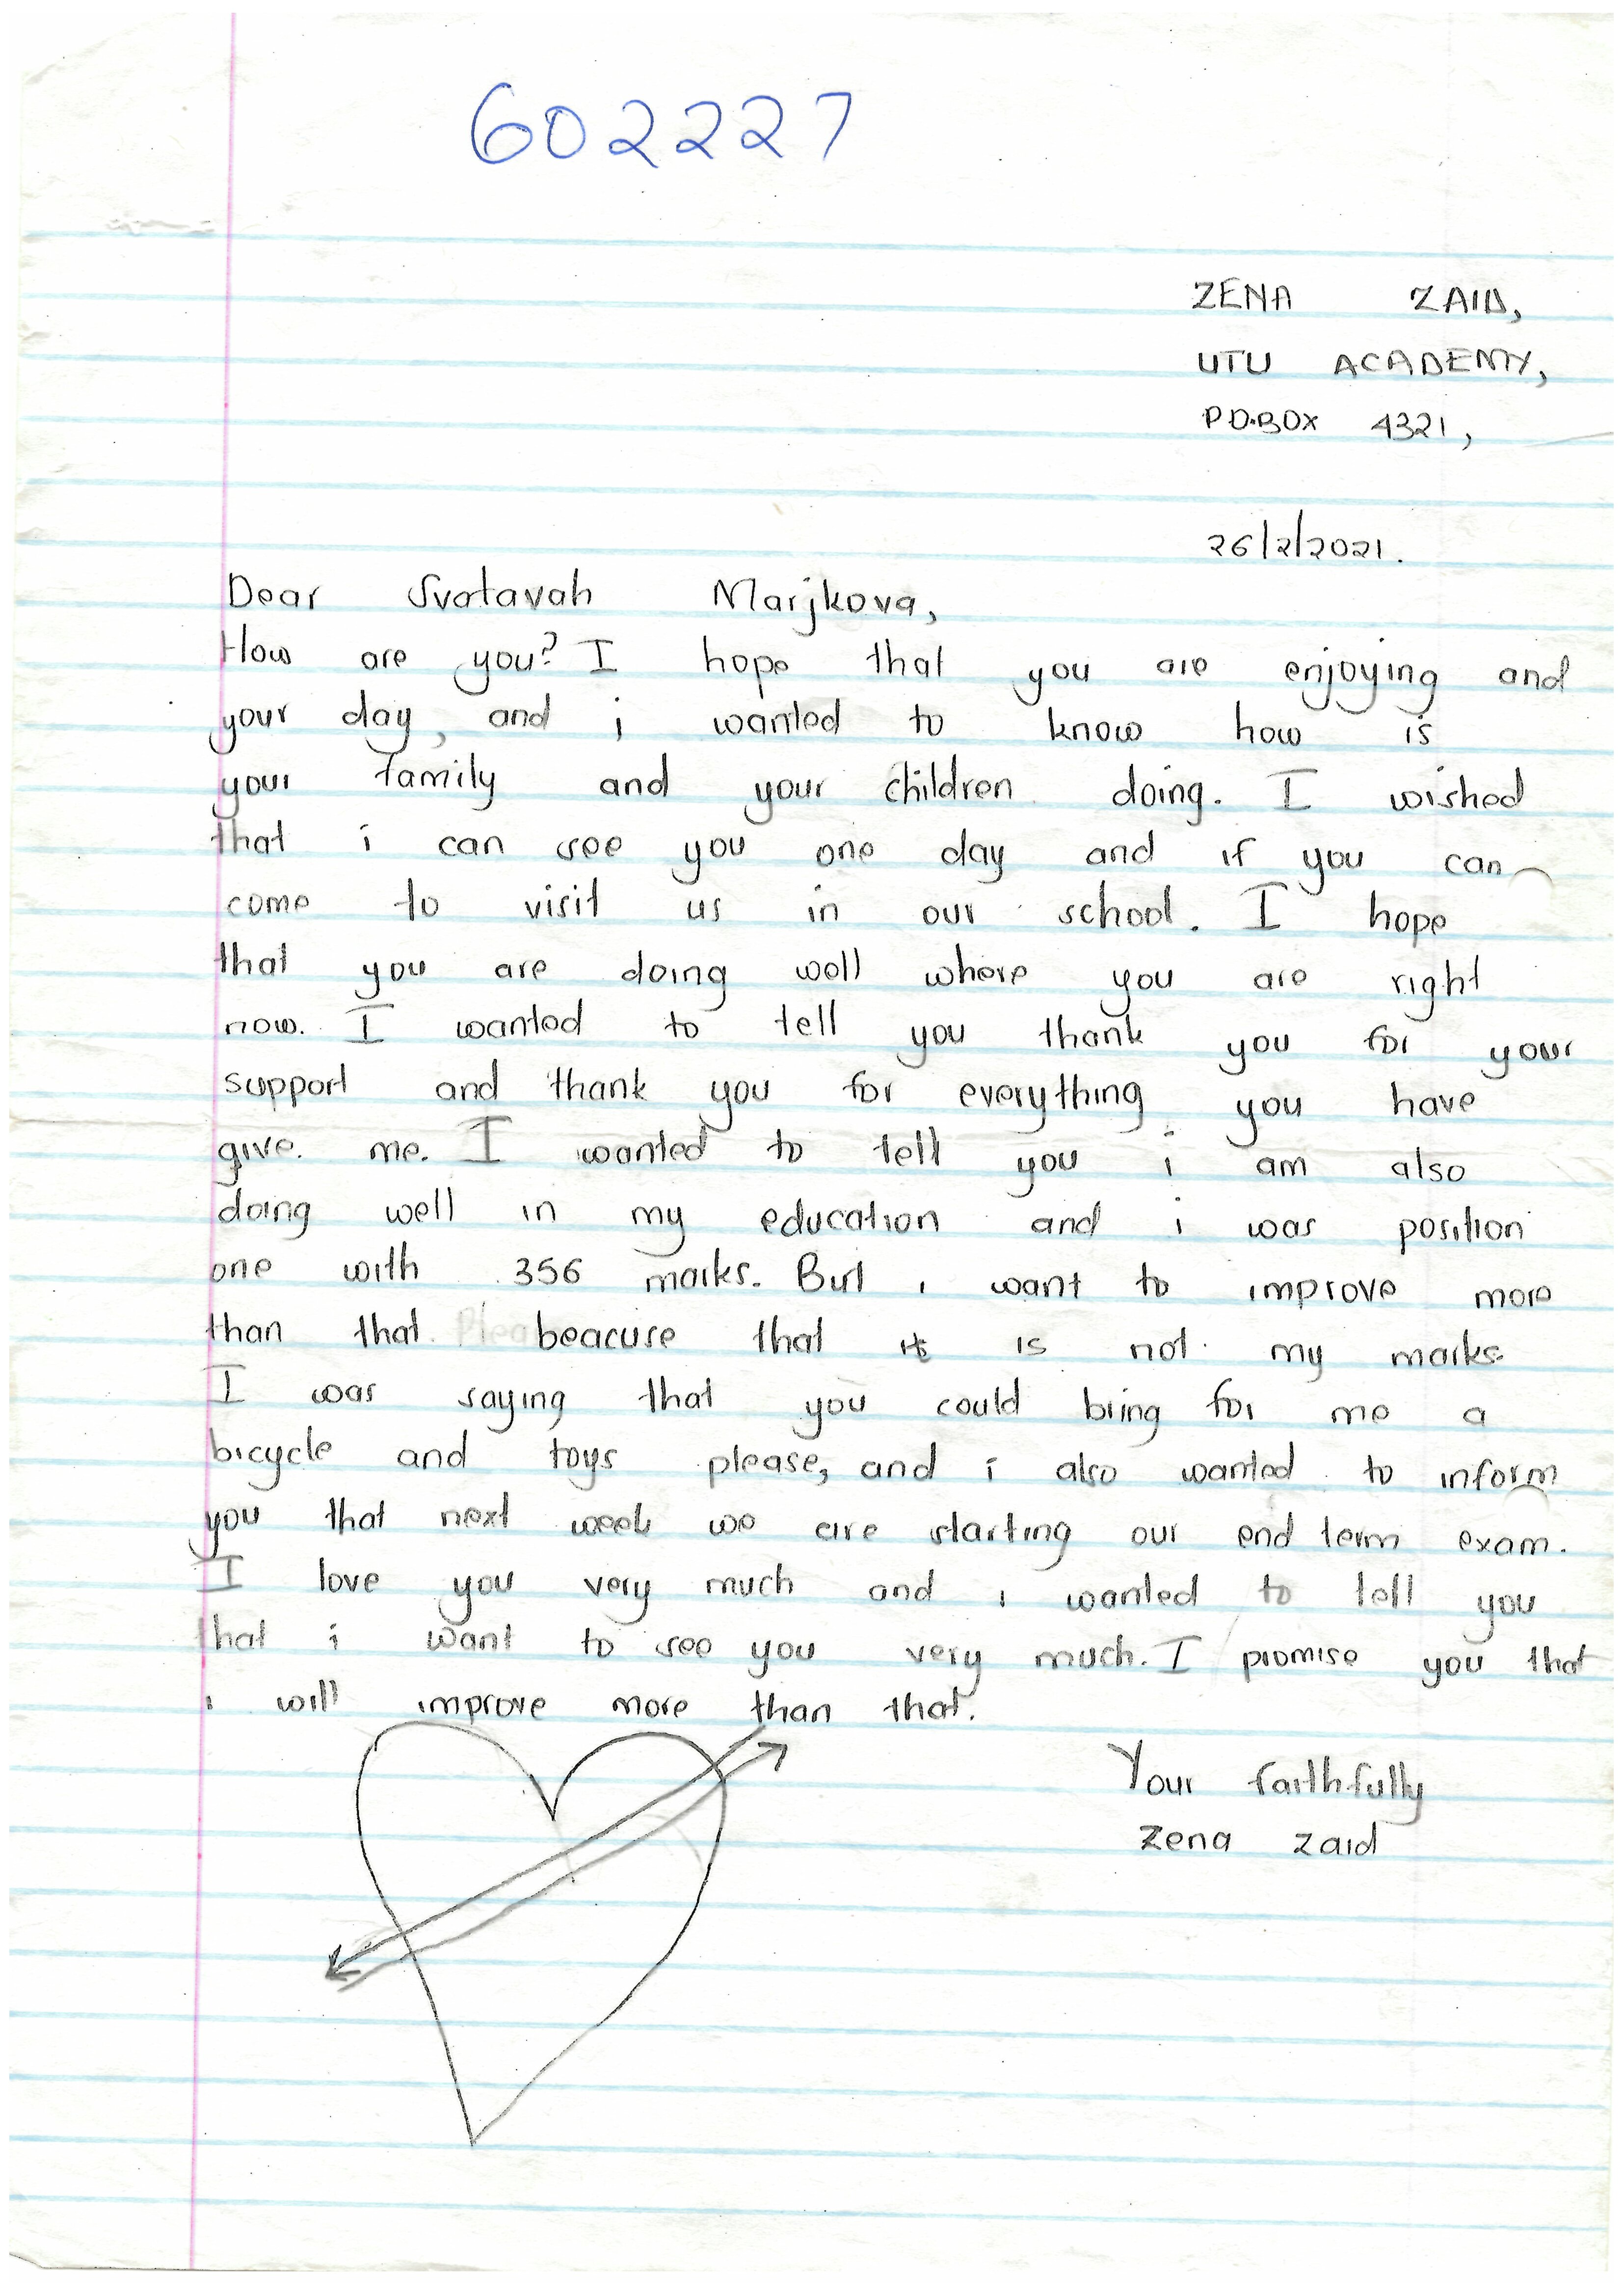 602227
ZENA ZAID,
UTU ACADEMY,
P.O.BOX 4321,
26/2/2021.
Dear Svatavah Marjkova,
How are you? I hope that you are enjoying and
your day, and i wanted to know how is
your family and your children doing. I wished
that i can see you one day and if you can
come to visit us in our school. I hope
that you are doing well where you are right
now. I wanted to tell you thank you for your
support and thank you for everything you have
give me. I wanted to tell you i am also
doing well in my education and i was position
one with 356 marks. But i want to improve more
than that beacuse that it is not my marks
I was saying that you could bring for me a
bicycle and toys please, and i also wanted to inform
you that next week we are starting our end term exam.
I love you very much and i wanted to tell you
that i want to see you very much. I promise you that
i will improve more than that.
Your faithfully
Zena zaid